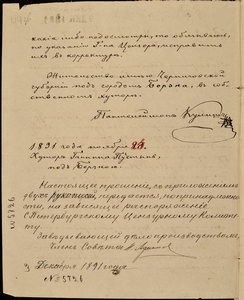 какія либо недосмотры, то обязываюсь,
по указанію Г-на Цензора, исправить
ихъ въ корректурѣ.
Жительство имѣю Черниговской
губерніи подъ городомъ Борзна, въ соб-
ственномъ хуторѣ.
Пантелеймонъ Кулишъ
1891 года ноября 24.
Хуторъ Ганнина Пустынь,
подъ Борзною.
Настоящее прошеніе, съ приложеніемъ
двухъ рукописей, передается, по принадлежно-
сти, на зависящее распоряженіе
С.Петербургскому Цензурному Комите-
ту.
Завѣдывающій дѣлопроизводствомъ,
Членъ Совѣта
3 Декабря 1891 года
№ 5726
№ 5726